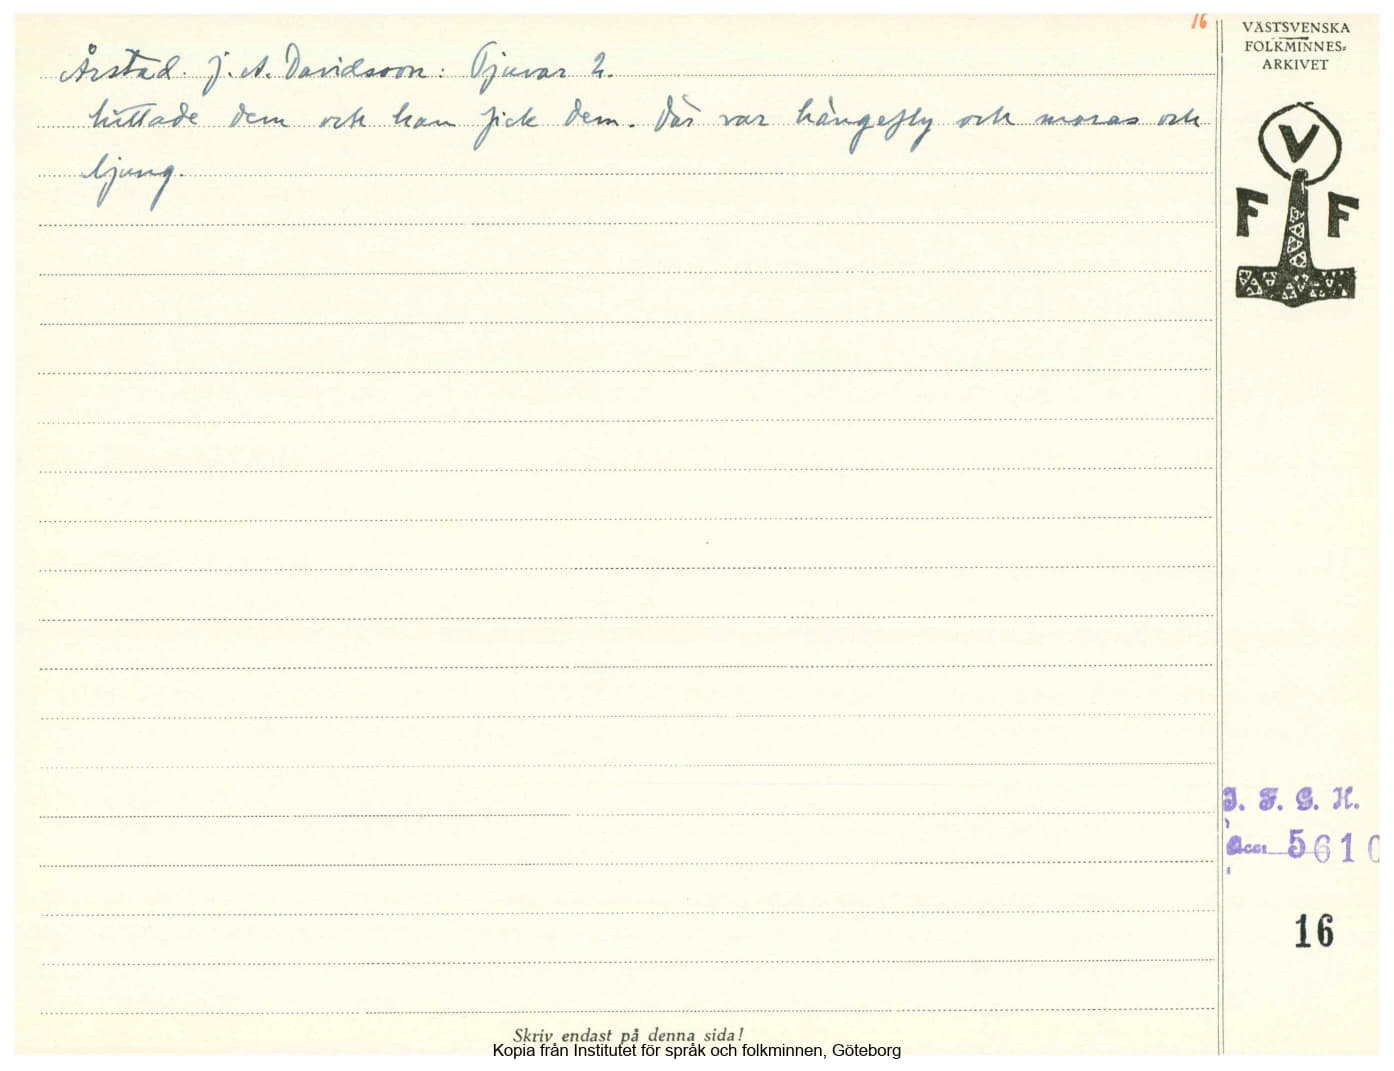 16
VÄSTSVENSKA
FOLKMINNES-
ARKIVET
V
F F
Årstad. J. A. Davidsson: Tjuvar 2.
hittade dem och han fick dem. Där var hängefly och moras och
ljung.
I. F. G. H.
Acc. 5610
16
Skriv endast på denna sida!
Kopia från Institutet för språk och folkminnen, Göteborg